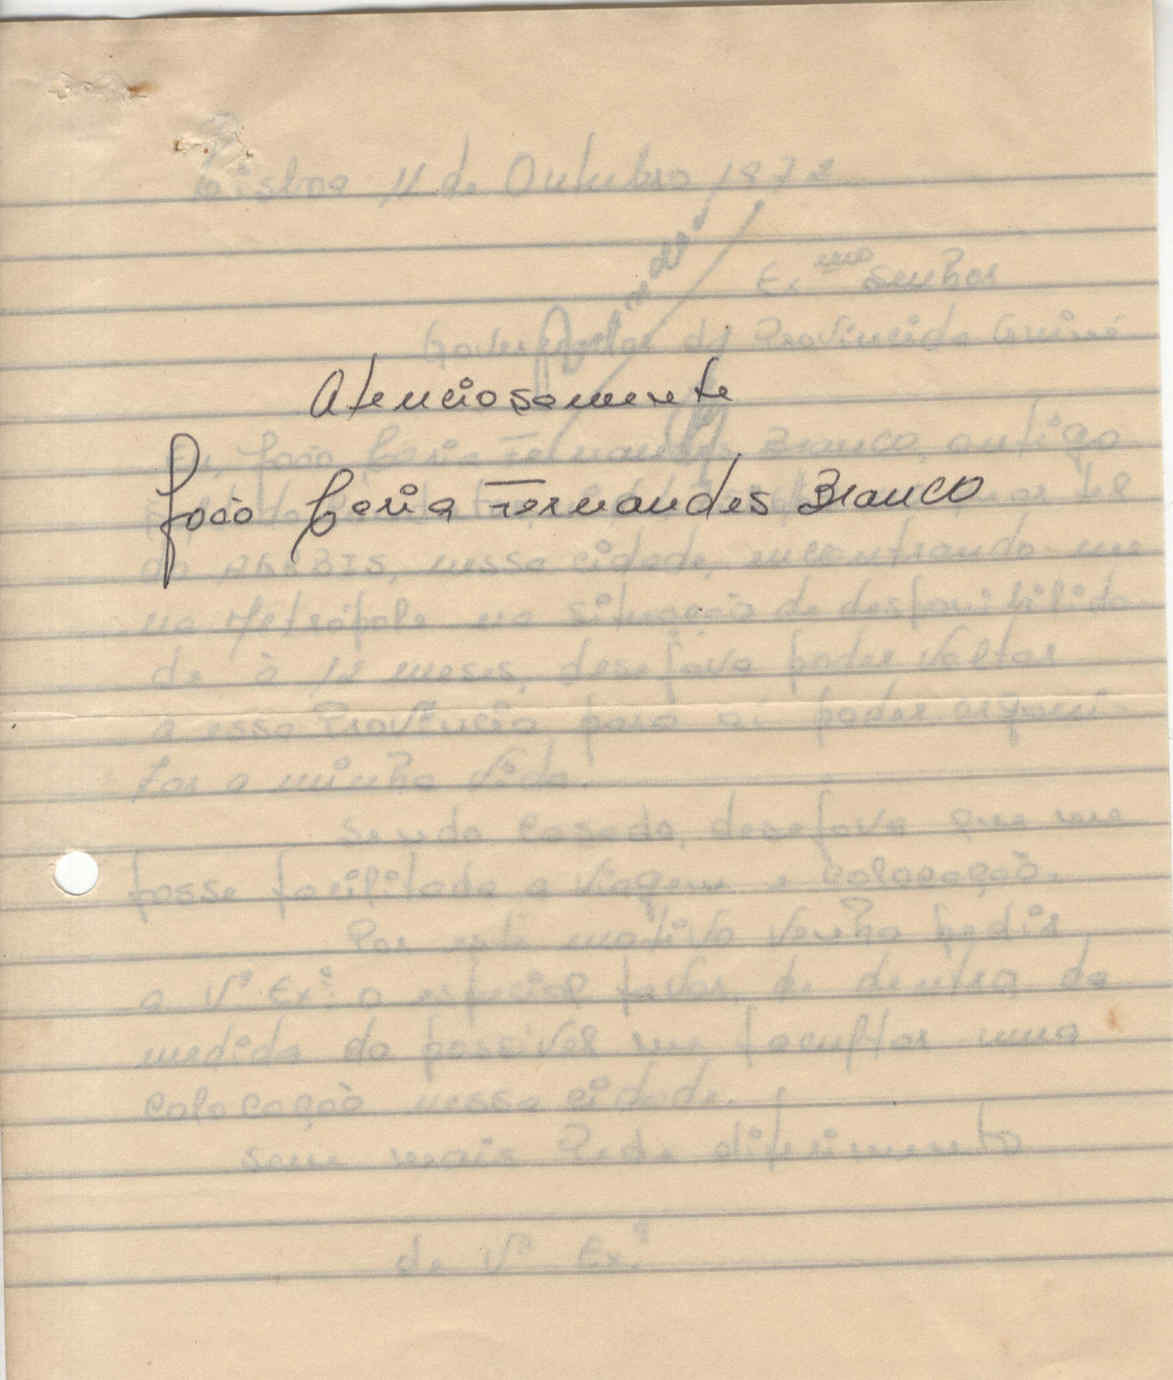 Lisboa 11 de Outubro 1972
Ex.mo Senhor
Governador da Província da Guiné
Atenciosamente
Eu, João Fernandes Branco, antigo
João Fernandes Branco
nessa cidade, encontrando-me
na Metrópole na situação de desponibilida-
de à 12 meses, desejava poder voltar
a essa Província para aí poder organi-
zar a minha vida.
Sendo casado, desejava que me
fosse facilitada a viagem e colocação.
Por este motivo venho pedir
a V.ª Ex.ª o especial favor, de dentro da
medida do possível me facultar uma
colocação nessa cidade.
Sem mais Pede diferimento
de V.ª Ex.ª